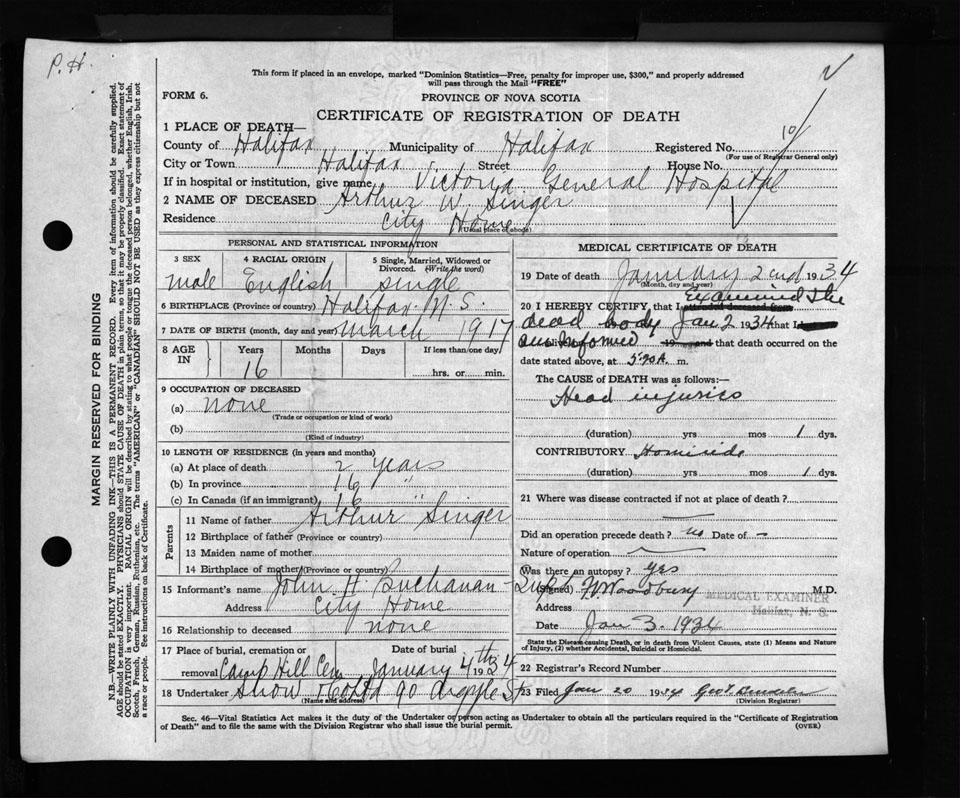 P. H.
This form if placed in an envelope, marked "Dominion Statistics—Free, penalty for improper use, $300," and properly addressed
will pass through the Mail "FREE"
FORM 6.
PROVINCE OF NOVA SCOTIA
CERTIFICATE OF REGISTRATION OF DEATH
1 PLACE OF DEATH—
County of Halifax Municipality of Halifax Registered No. 10
(For use of Registrar General only)
City or Town Halifax Street House No.
If in hospital or institution, give name Victoria General Hospital
2 NAME OF DECEASED Arthur W. Singer
Residence City Home
(Usual place of abode)
PERSONAL AND STATISTICAL INFORMATION
3 SEX
male
4 RACIAL ORIGIN
English
5 Single, Married, Widowed or
Divorced. (Write the word)
single
6 BIRTHPLACE (Province or country) Halifax N. S.
7 DATE OF BIRTH (month, day and year) March 1917
8 AGE IN Years Months Days If less than one day
16 hrs. or min.
9 OCCUPATION OF DECEASED
(a) none
(Trade or occupation or kind of work)
(b)
(Kind of industry)
10 LENGTH OF RESIDENCE (in years and months)
(a) At place of death 2 years
(b) In province 16 "
(c) In Canada (if an immigrant) 16 "
Parents
11 Name of father Arthur Singer
12 Birthplace of father (Province or country)
13 Maiden name of mother
14 Birthplace of mother (Province or country)
15 Informant's name John H. Buchanan - Supt
Address City Home
16 Relationship to deceased none
17 Place of burial, cremation or Date of burial
removal Camp Hill Cem January 4th 1934
18 Undertaker Snow & Co Ltd 90 Argyle St
(Name and address)
MEDICAL CERTIFICATE OF DEATH
19 Date of death January 2nd 1934
(Month, day and year)
20 I HEREBY CERTIFY, that I attended deceased from Examined the
dead body Jan 2 1934 that I
am informed 19 and that death occurred on the
date stated above, at 5:20 A. m.
The CAUSE of DEATH was as follows:—
Head injuries
(duration) yrs mos 1 dys.
CONTRIBUTORY Homicide
(duration) yrs mos 1 dys.
21 Where was disease contracted if not at place of death?
Did an operation precede death? no Date of –
Nature of operation
Was there an autopsy? yes
(Signed) F. Woodbury M.D.
MEDICAL EXAMINER
Halifax, N. S.
Address
Date Jan 3. 1934
State the Disease causing Death, or in death from Violent Causes, state (1) Means and Nature
of Injury, (2) whether Accidental, Suicidal or Homicidal.
22 Registrar's Record Number
23 Filed Jan 20 1934 Geo
(Division Registrar)
Sec. 46—Vital Statistics Act makes it the duty of the Undertaker or person acting as Undertaker to obtain all the particulars required in the "Certificate of Registration
of Death" and to file the same with the Division Registrar who shall issue the burial permit. (OVER)
MARGIN RESERVED FOR BINDING
N.B.—WRITE PLAINLY WITH UNFADING INK—THIS IS A PERMANENT RECORD. Every item of information should be carefully supplied.
AGE should be stated EXACTLY. PHYSICIANS should STATE CAUSE OF DEATH in plain terms, so that it may be properly classified. Exact statement of
OCCUPATION is very important. RACIAL ORIGIN will be described by stating to what people or tongue the deceased person belonged, whether English, Irish,
Scotch, French, German, Russian, Ruthenian, etc. The terms "AMERICAN" or "CANADIAN" SHOULD NOT BE USED as they express citizenship but not
a race or people. See instructions on back of Certificate.